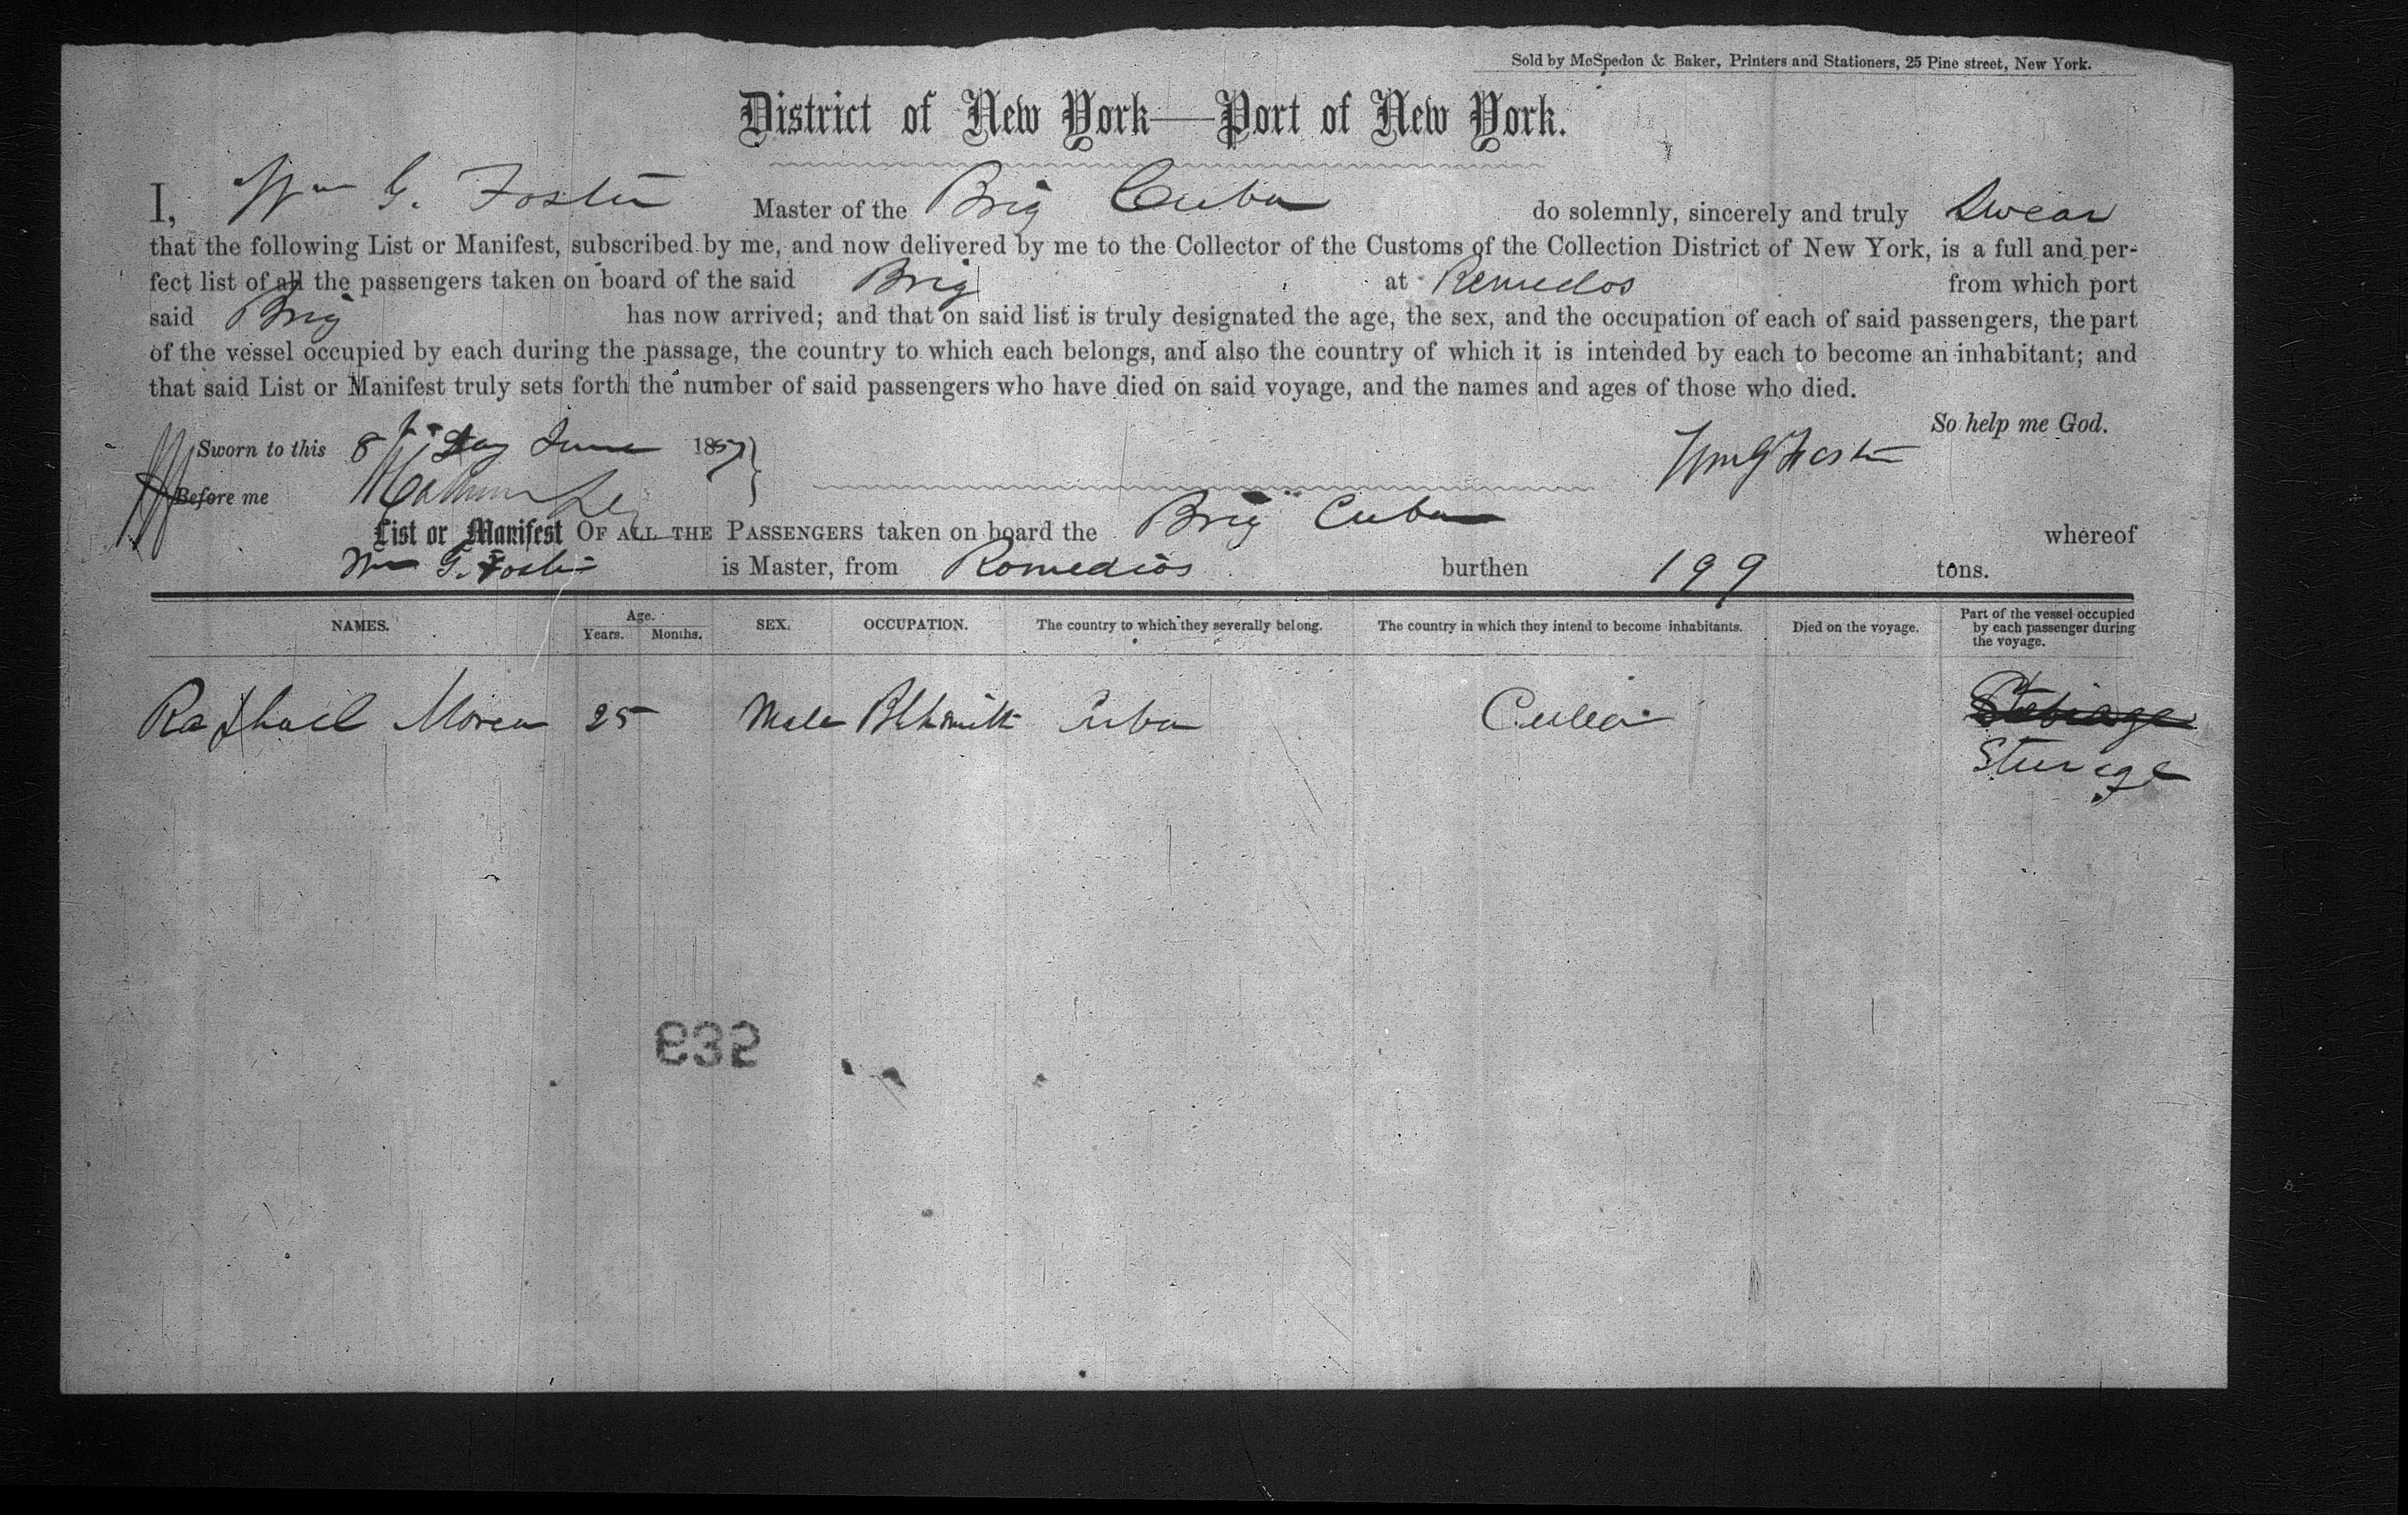 Sold by McSpedon & Baker, Printers and Stationers, 25 Pine street, New York.
District of New York—Port of New York.
I, Wm G. Foster Master of the Brig Cuba do solemnly, sincerely and truly Swear
that the following List or Manifest, subscribed by me, and now delivered by me to the Collector of the Customs of the Collection District of New York, is a full and per-
fect list of all the passengers taken on board of the said Brig at Remedos from which port
said Brig has now arrived; and that on said list is truly designated the age, the sex, and the occupation of each of said passengers, the part
of the vessel occupied by each during the passage, the country to which each belongs, and also the country of which it is intended by each to become an inhabitant; and
that said List or Manifest truly sets forth the number of said passengers who have died on said voyage, and the names and ages of those who died.
So help me God.
Sworn to this 8th day June 1857
Wm G Foster
Before me
List or Manifest OF ALL THE PASSENGERS taken on board the Brig Cuba whereof
Wm G. Foster is Master, from Romedios burthen 199 tons.
NAMES. Age. Years. Months. SEX. OCCUPATION. The country to which they severally belong. The country in which they intend to become inhabitants. Died on the voyage. Part of the vessel occupied by each passenger during the voyage.
Raphael Morea 25 Male Blksmith Cuba Cuba
Sturage
632